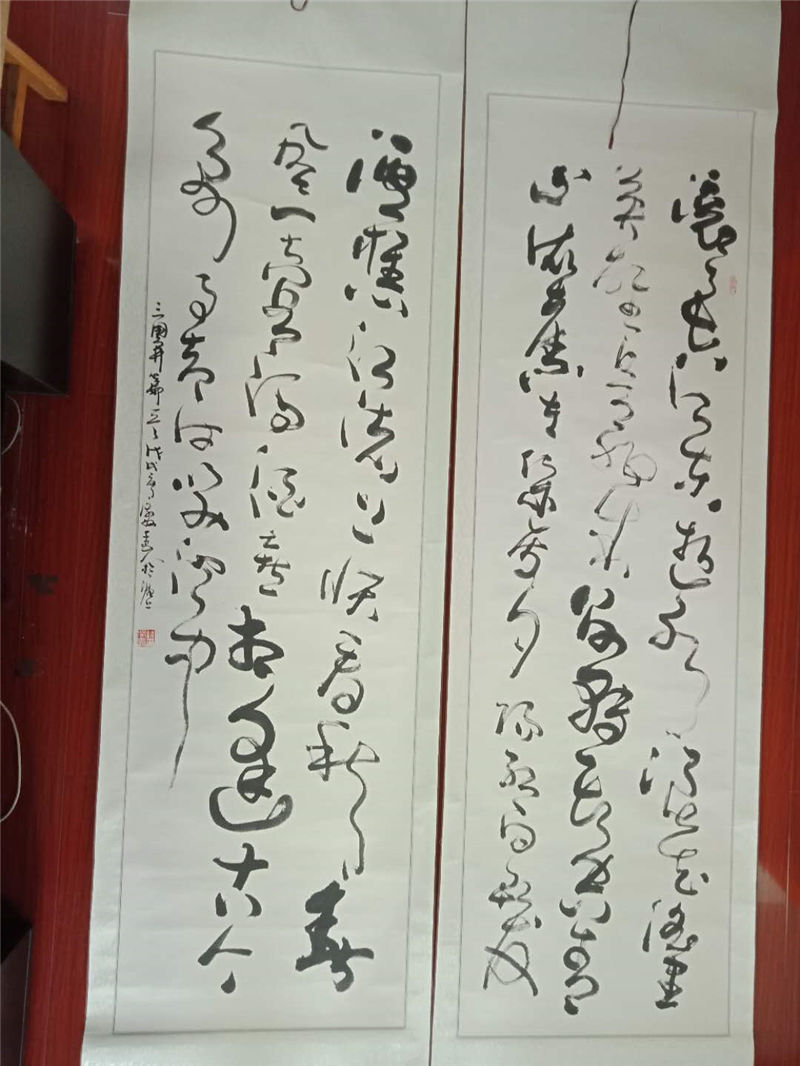 滚滚长江东逝水浪花淘尽
英雄是非成败转头空青
山依旧在几度夕阳红白发
渔樵江渚上惯看秋月春
风一壶浊酒喜相逢古今
多少事都付笑谈中
三國开篇 戊戌